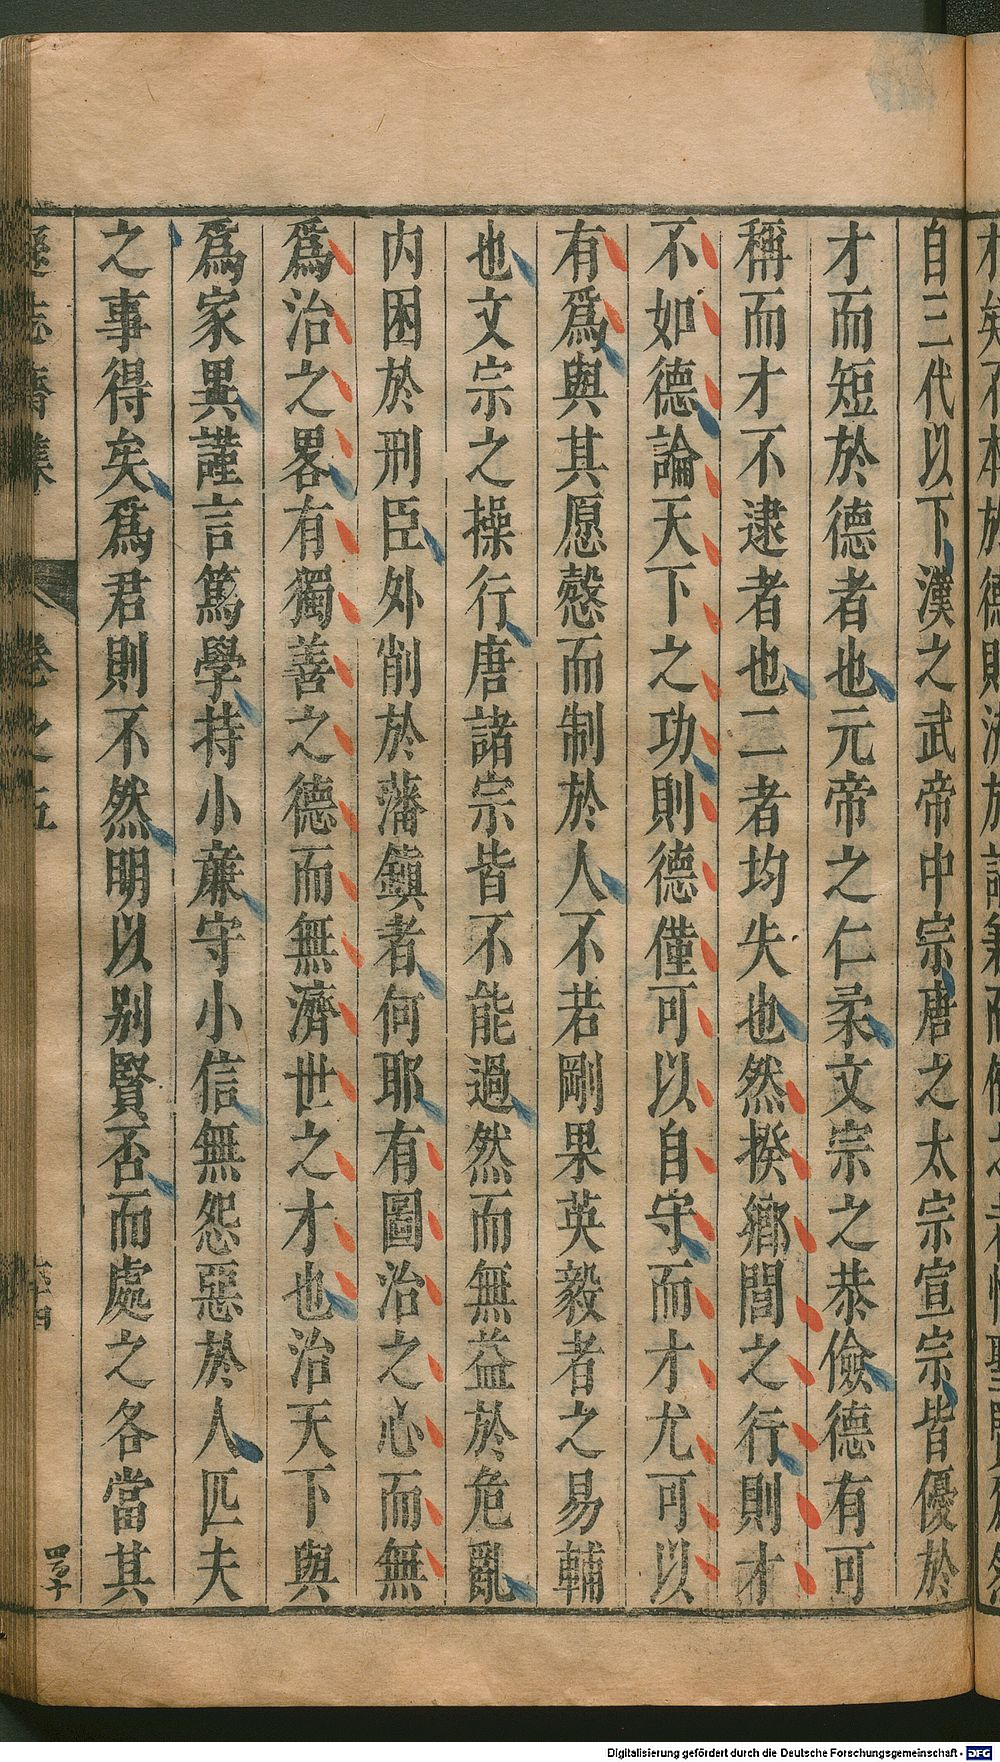 自三代以下漢之武帝中宗唐之太宗宣宗皆優於
才而短於德者也元帝之仁柔文宗之恭儉德有可
稱而才不逮者也二者均失也然揆鄉閭之行則才
不如德論天下之功則德僅可以自守而才尤可以
有爲與其愿慤而制於人不若剛果英毅者之易輔
也文宗之操行唐諸宗皆不能過然而無益於危亂
内困於刑臣外削於藩鎮者何耶有圖治之心而無
爲治之畧有獨善之德而無濟世之才也治天下與
爲家異謹言篤學持小亷守小信無怨惡於人匹夫
之事得矣爲君則不然明以别賢否而處之各當其
遜志齋集
卷之五
Digitalisierung gefördert durch die Deutsche Forschungsgemeinschaft - DFG